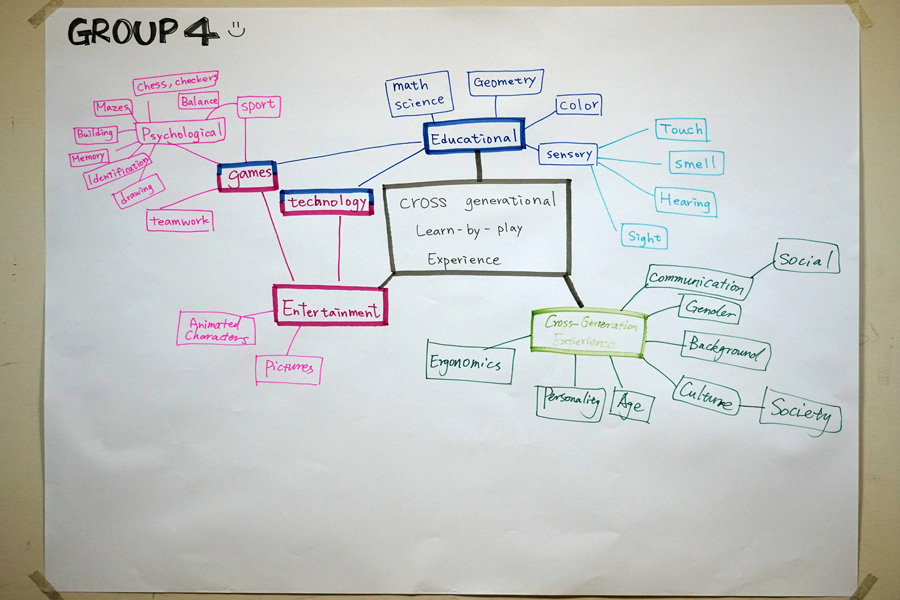 GROUP 4
Chess, checkers
Mazes
Balance
sport
Building
Psychological
Memory
Identification
drawing
games
teamwork
math
science
Geometry
color
Educational
sensory
Touch
smell
Hearing
Sight
technology
cross generational
Learn-by-play
Experience
Entertainment
Animated
Characters
Pictures
Cross-Generation
Experience
Communication
Social
Gender
Background
Culture
Society
Ergonomics
Personality
Age